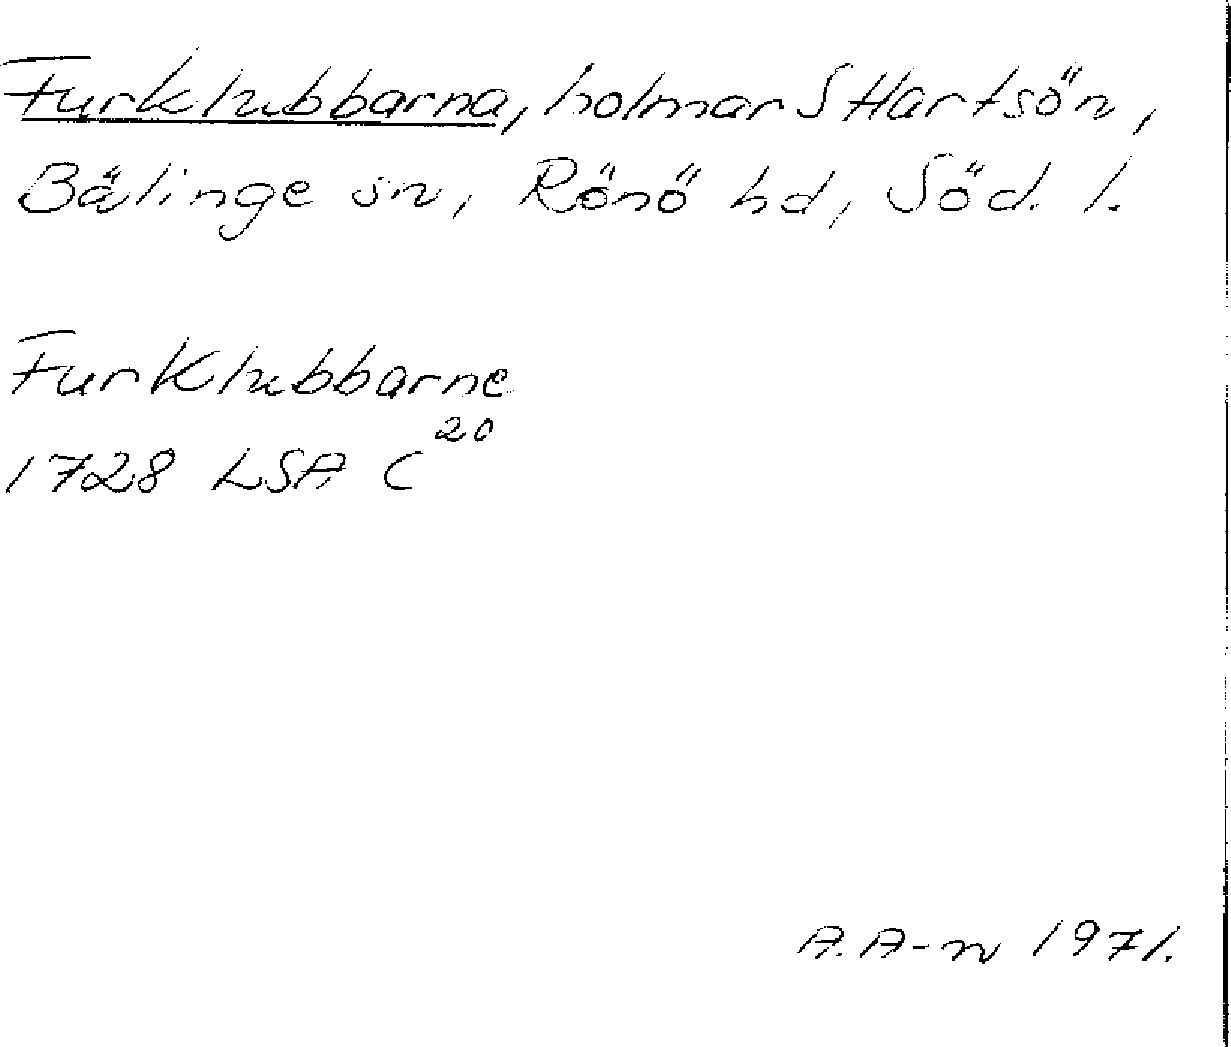 Furklubbarna, holmar S Hartsön,
Bälinge sn, Rönö hd, Söd. l.
Furklubbarne
1728 LSA C²⁰
A. A-n 1971.